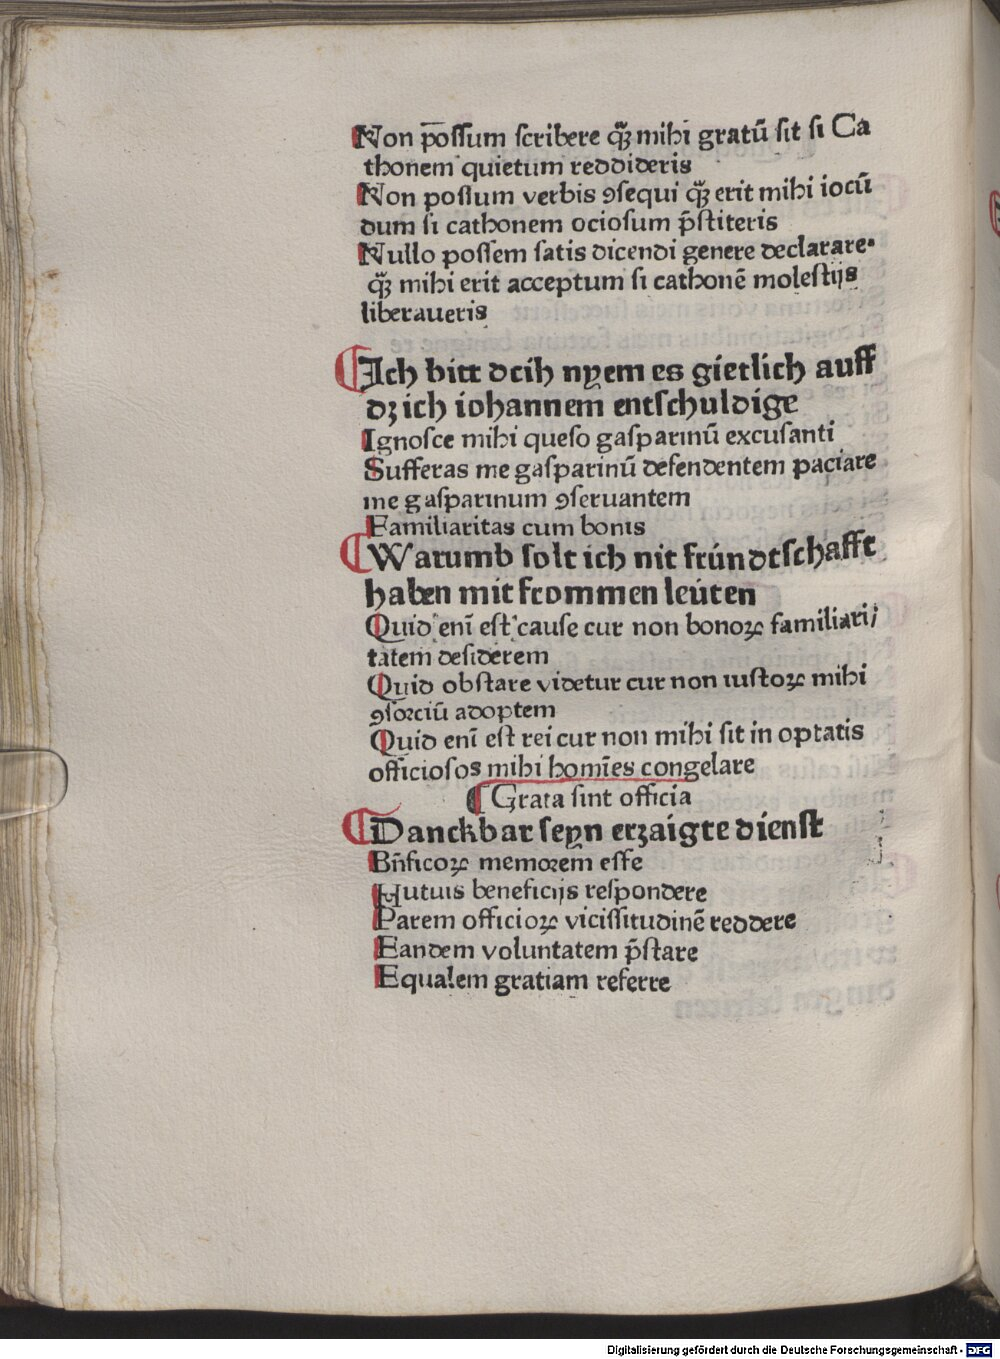 Non possum scribere qʒ̃ mihi gratū sit si Ca
thonem quietum reddideris
Non possum verbis ꝯsequi qʒ̃ erit mihi iocū
dum si cathonem ociosum p̄stiteris
Nullo possem satis dicendi genere declarare·
qʒ̃ mihi erit acceptum si cathonē molestijs
liberaueris
Ich bitt dcih nyem es gietlich auff
dʒ ich iohannem entschuldige
Ignosce mihi queso gasparinū excusanti
Sufferas me gasparinū defendentem paciare
me gasparinum ꝯseruantem
Familiaritas cum bonis
Warumb solt ich nit fründtschafft
haben mit frommen leüten
Quid enī est cause cur non bonoꝝ familiari/
tatem desiderem
Quid obstare videtur cur non iustoꝝ mihi
ꝯsorciū adoptem
Quid enī est rei cur non mihi sit in optatis
officiosos mihi homīes congelare
Grata sint officia
Danckbar seyn erzaigte dienst
Bn̄ficoꝝ memorem esse
Hutuis beneficijs respondere
Parem officioꝝ vicissitudinē reddere
Eandem voluntatem p̄stare
Equalem gratiam referre
Digitalisierung gefördert durch die Deutsche Forschungsgemeinschaft - DFG